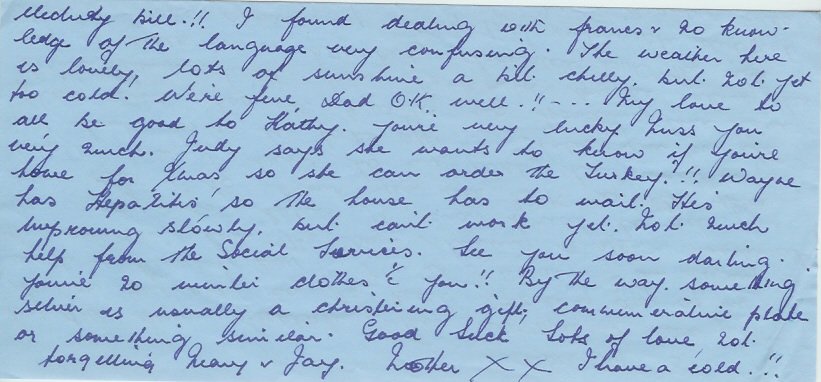 Electricity bill.!! I found dealing with francs & no know-
ledge of the language very confusing. The weather here
is lovely, lots of sunshine a bit chilly. but not yet
too cold. We're fine, Dad O.K. well.!! --- My love to
all be good to Kathy. you're very lucky Miss you
very much. Judy says she wants to know if you're
home for Xmas so she can order the Turkey.!! Wayne
has Hepatitis! so the house has to wait. He's
improving slowly. but can't work yet. Not much
help from the Social Services. See you soon darling.
you've no winter clothes & you!! By the way. something
silver is usually a christening gift, commemerative plate
or something similar. Good luck, Lots of love not
forgetting Mary & Jay. Mother X X I have a cold.!!